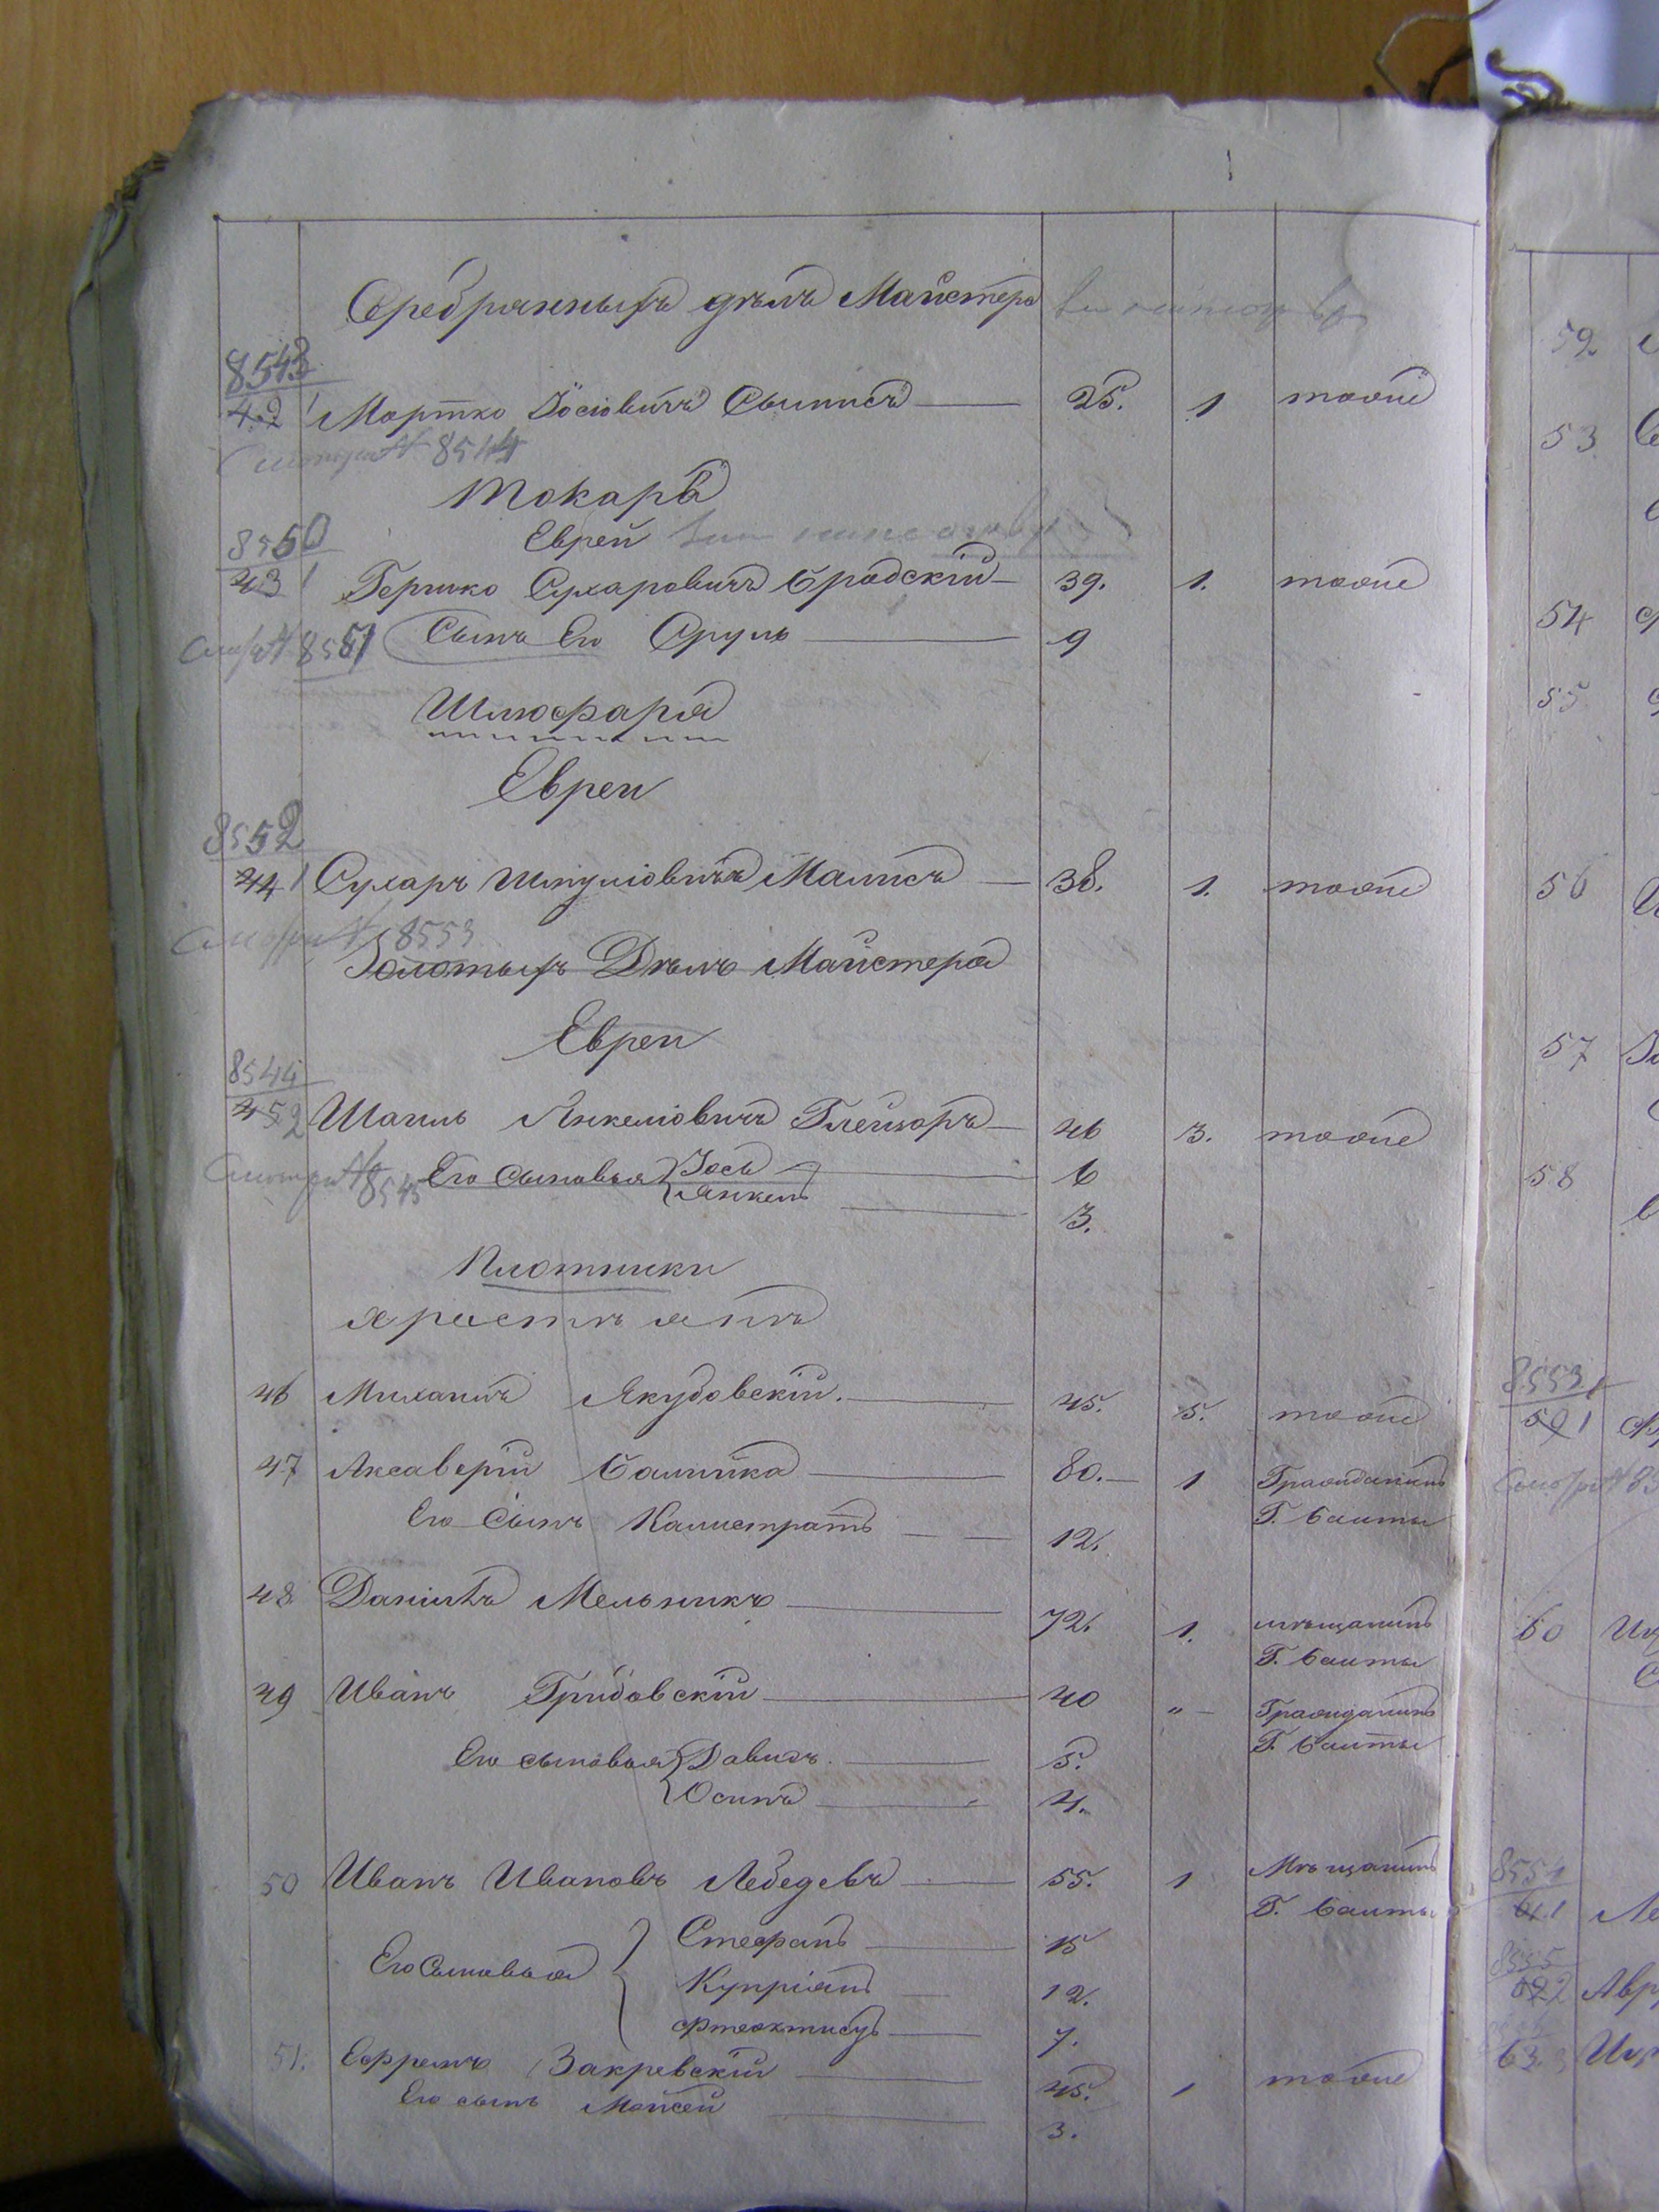 Серебряныхъ дѣлъ Майстера
8543
42 1 Мортко Іосіовичъ Сыписъ 25. 1 тоже
Смотри № 8544
Токаря
Евреи
8550
43 1 Гершко Сухаровичъ Бродскій 39. 1. тоже
Смотри № 8551 Сынъ Его Сруль 9
Шлюфаря
Евреи
8552
44 1 Сухаръ Шмулiовичъ Малисъ 38. 1. тоже
Смотри № 8553
Золотыхъ Дѣлъ Майстера
Евреи
8544
45 2 Шаиль Янкеліовичъ Глейзоръ 46 3. тоже
Смотри № 8545 Его Сыновья Іось 6
Янкель 3.
Плотники
Христіяне
46 Михаилъ Якубовскій. 45. 5. тоже
47 Аксаверій Балыйка 80. 1 Гражданинъ
Г. Балты
Его Сынъ Калистратъ 12.
48 Даніилъ Мельникъ 72. 1. мѣщанинъ
Г. Балты
49 Иванъ Грибовскій 40 " Гражданинъ
Г. Балты
Его сыновья Давидъ. 5.
Осипъ 4.
50 Иванъ Ивановъ Лебедевъ 55. 1 Мѣщанинъ
Г. Балты
Его Сыновья Стефанъ 15
Купріянъ 12.
Фтеоктистъ 7.
51. Ефремъ Закревскій 45. 1 тоже
Его сынъ Мойсей 3.
59
53
54
55
56
57
58
8553
59 1
Смотри № 85
60
8554
61 1
8555
62 2 Авр
63 3